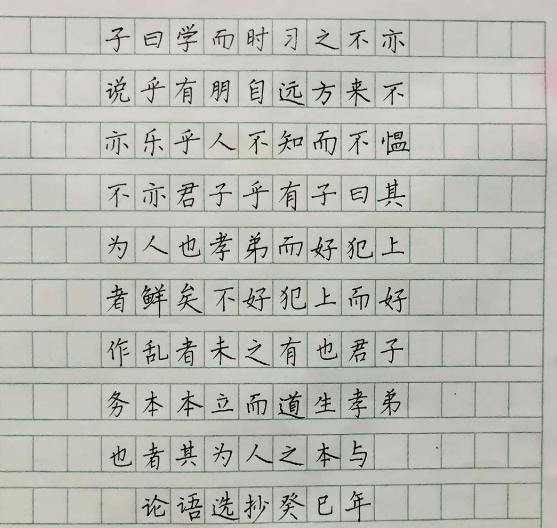 子曰学而时习之不亦
说乎有朋自远方来不
亦乐乎人不知而不愠
不亦君子乎有子曰其
为人也孝弟而好犯上
者鲜矣不好犯上而好
作乱者未之有也君子
务本本立而道生孝弟
也者其为人之本与
论语选抄癸巳年